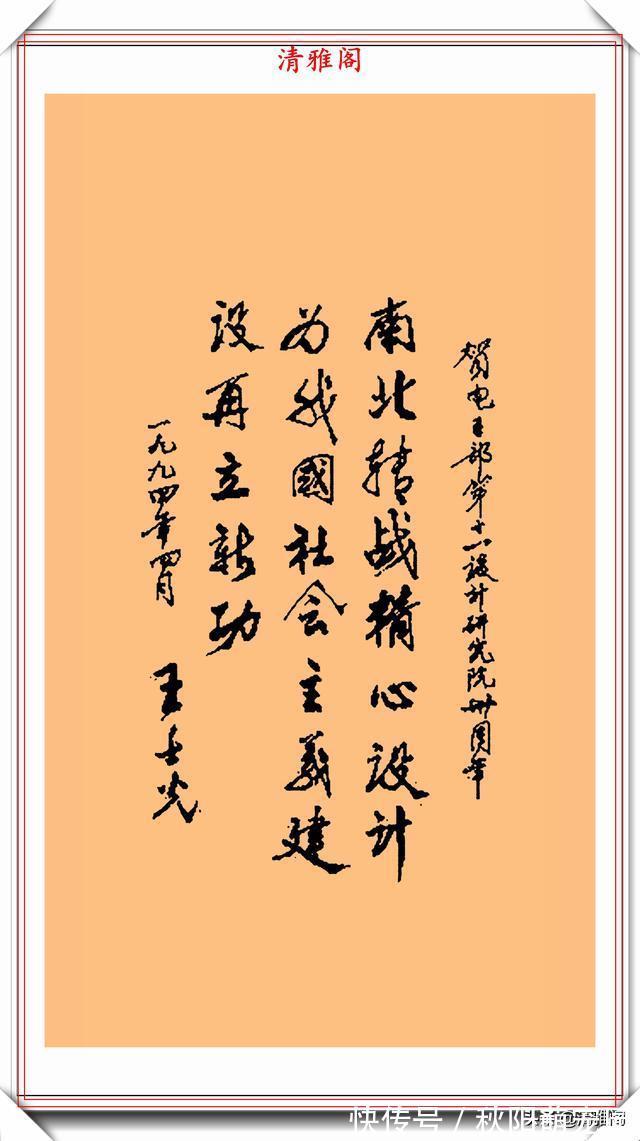 清雅阁
贺电子部第十一设计研究院卅周年
南北转战精心设计
为我國社会主義建
设再立新功
一九九四年四月
王士光
快传号 / 秋阳
头条 @清雅阁